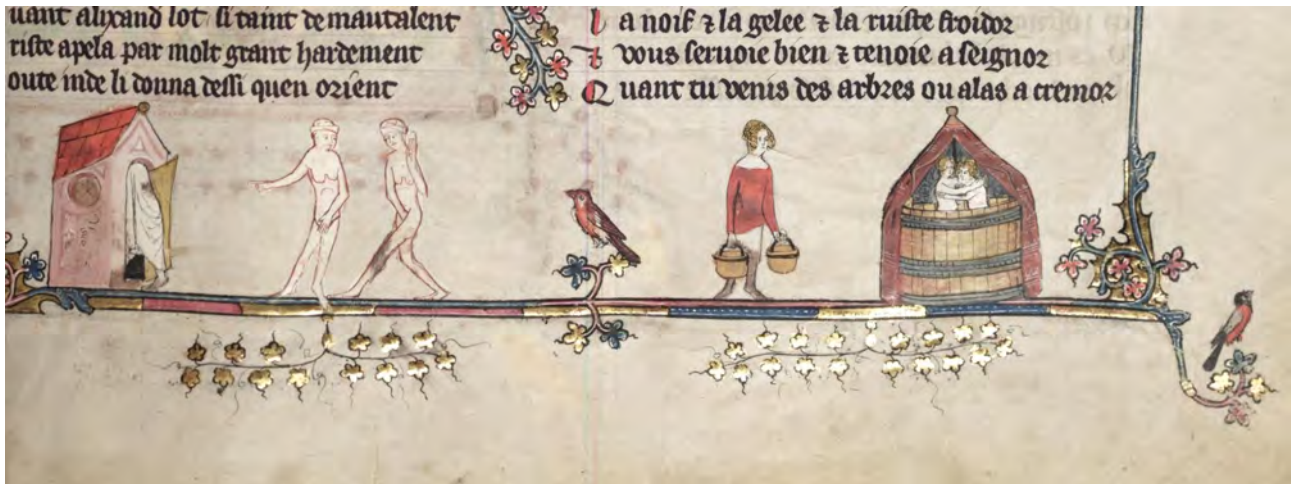 uant alixand lot si taint de mautalent
riste apela par molt grant hardement
oute inde li donna dessi quen orient
l a noif ⁊ la gelee ⁊ la ruiste froidor
t vous seruoie bien ⁊ tenoie a seignor
Q uant tu venis des arbres ou alas a cremor